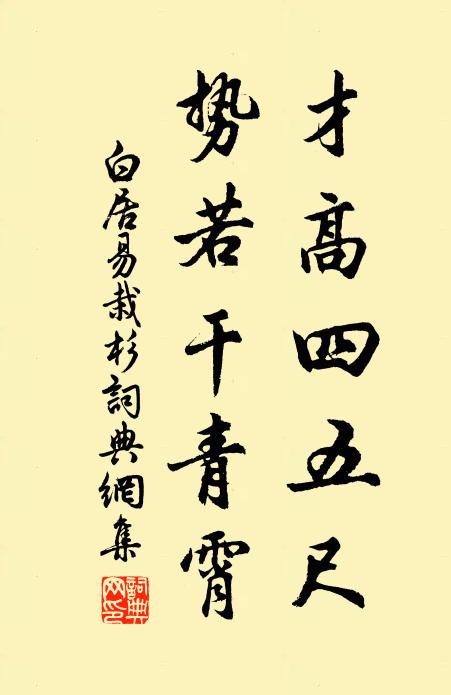 才高四五尺
势若干青霄
白居易栽杉詞典網集
詞典網印